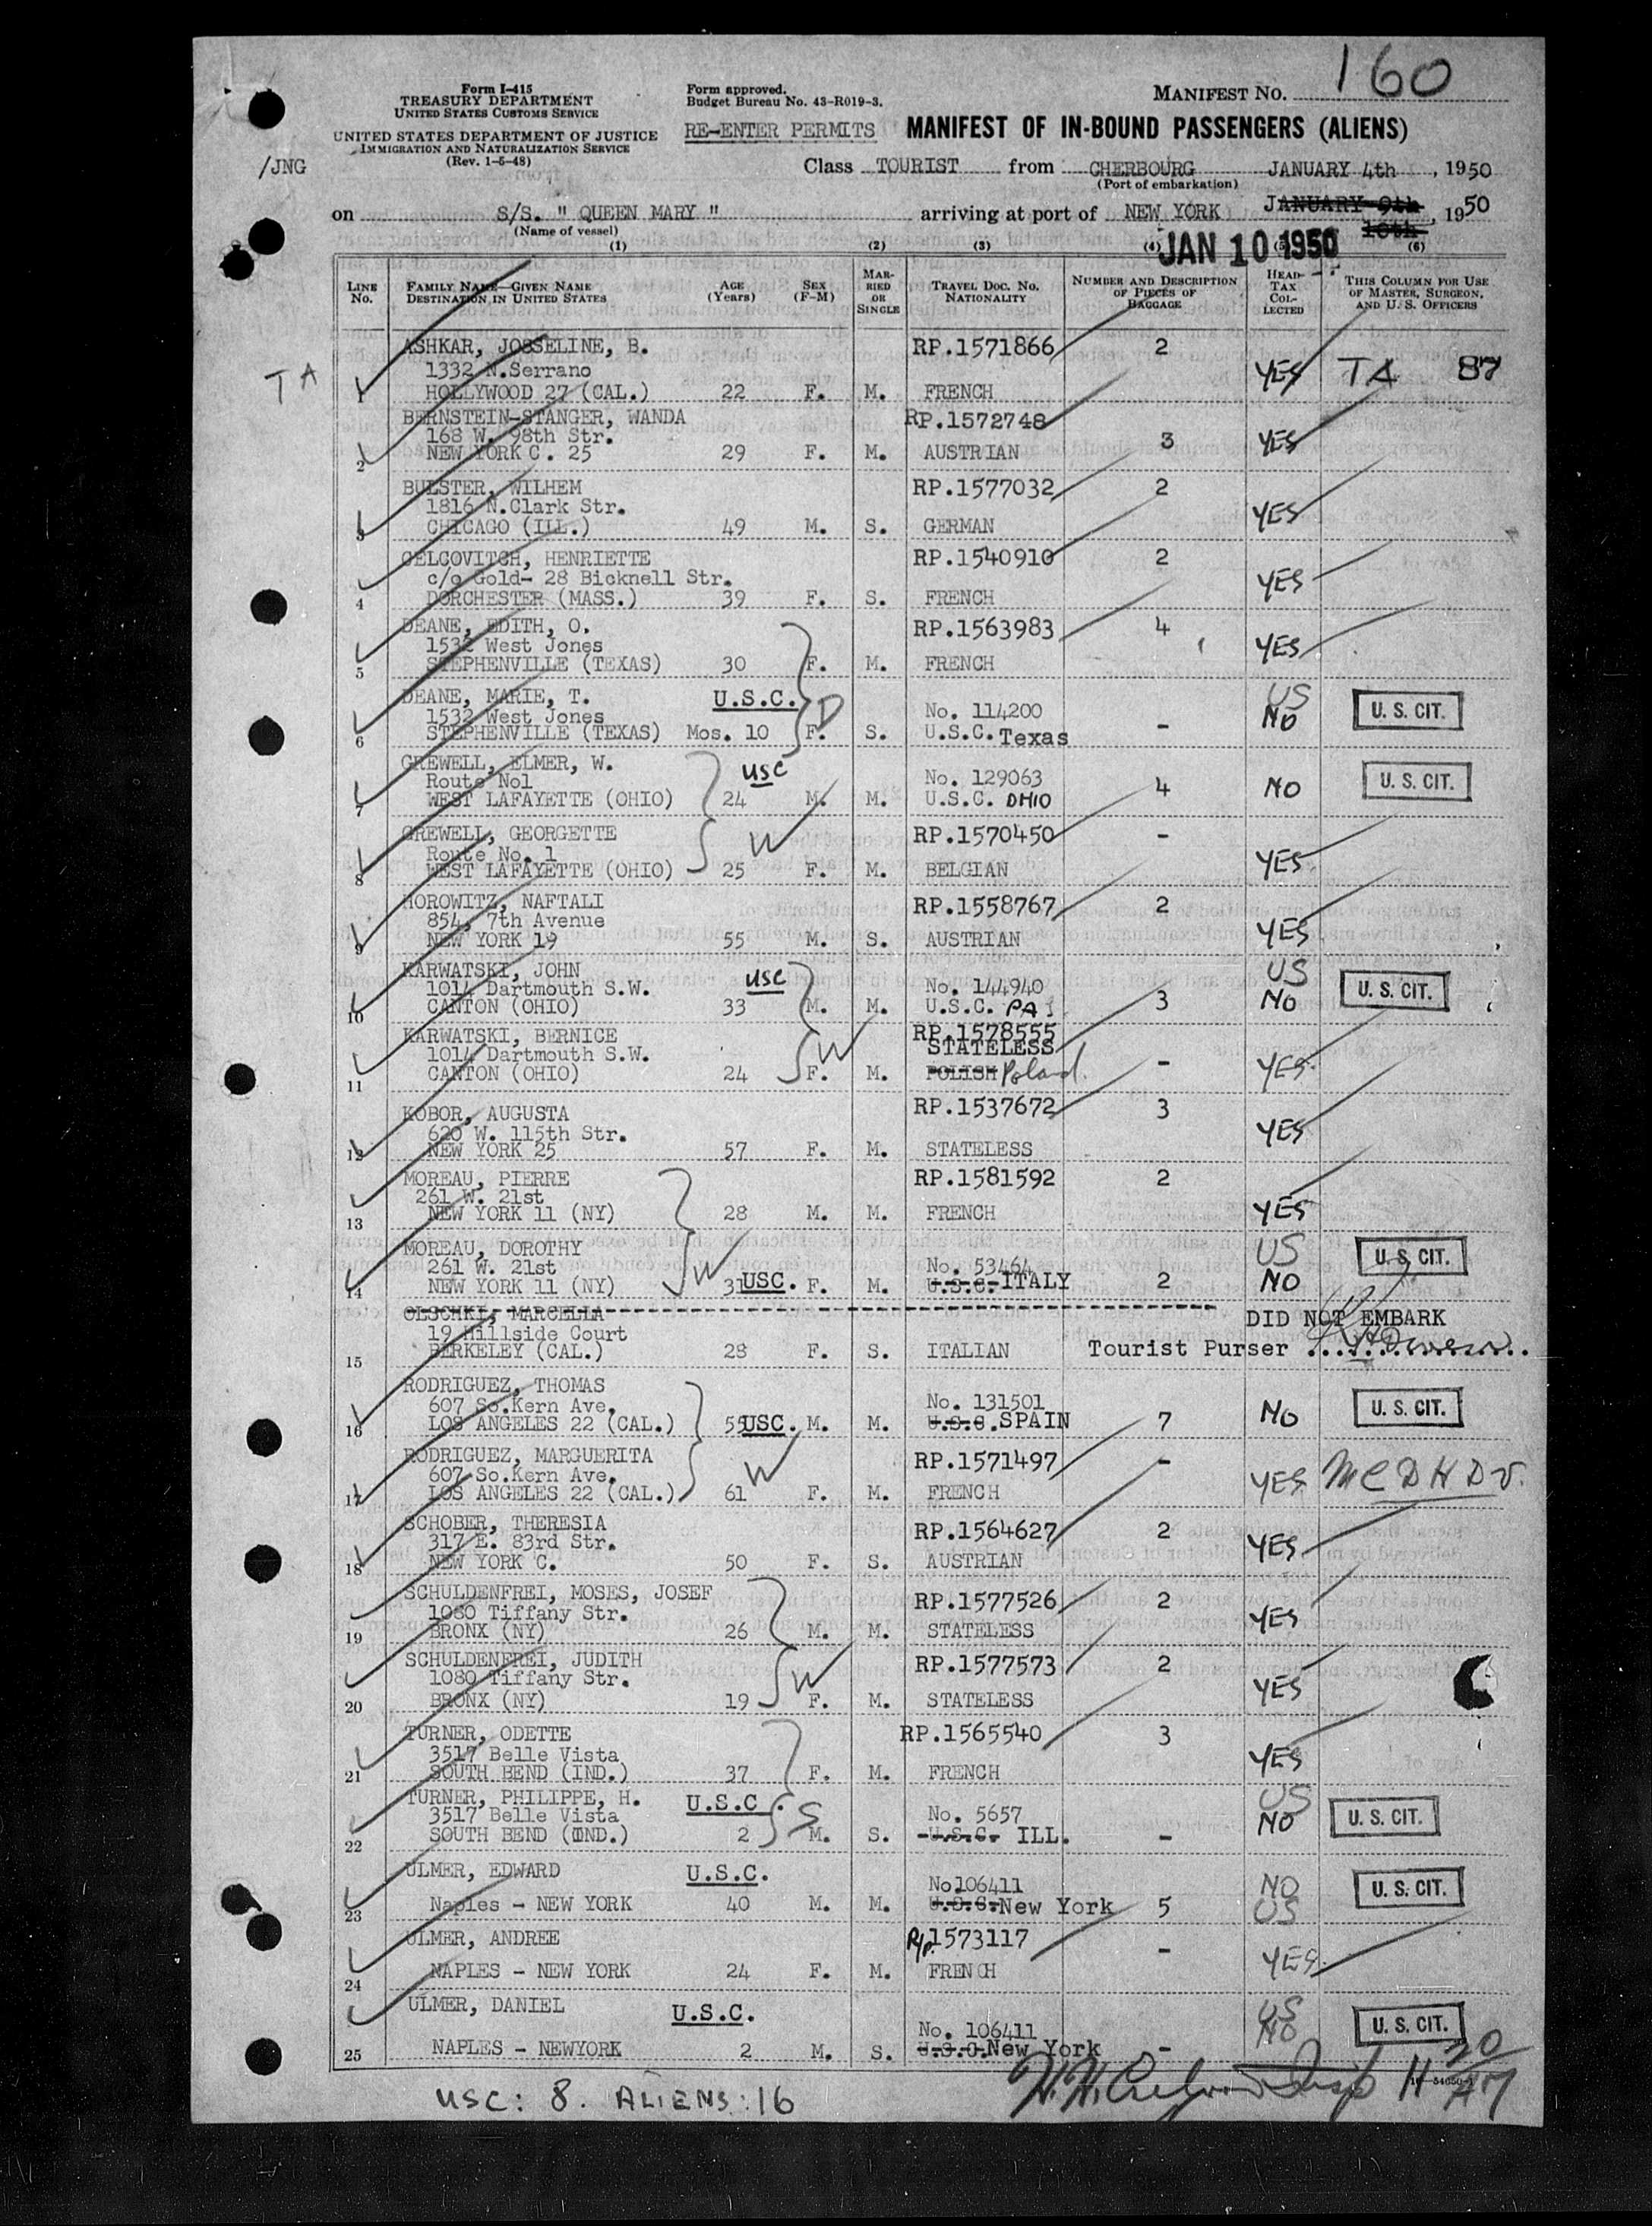 160
Form I-415
TREASURY DEPARTMENT
UNITED STATES CUSTOMS SERVICE
UNITED STATES DEPARTMENT OF JUSTICE
IMMIGRATION AND NATURALIZATION SERVICE
(Rev. 1-5-48)
/JNG
Form approved.
Budget Bureau No. 43-R019-3.
RE-ENTER PERMITS
MANIFEST NO.
MANIFEST OF IN-BOUND PASSENGERS (ALIENS)
Class TOURIST from CHERBOURG JANUARY 4th, 1950
(Port of embarkation)
on S/S. " QUEEN MARY " arriving at port of NEW YORK JANUARY 9th, 1950
10th
(Name of vessel)
JAN 10 1950
(1) (2) (3) (4) (5) (6)
LINE No. FAMILY NAME—GIVEN NAME DESTINATION IN UNITED STATES AGE (Years) SEX (F-M) MARRIED OR SINGLE TRAVEL DOC. NO. NATIONALITY NUMBER AND DESCRIPTION OF PIECES OF BAGGAGE HEAD-TAX COLLECTED THIS COLUMN FOR USE OF MASTER, SURGEON, AND U. S. OFFICERS
ASHKAR, JOSSELINE, B. RP.1571866 2
TA 1332 N.Serrano YES TA 87
1 HOLLYWOOD 27 (CAL.) 22 F. M. FRENCH
BERNSTEIN-STANGER, WANDA RP.1572748
168 W. 98th Str. 3 YES
2 NEW YORK C. 25 29 F. M. AUSTRIAN
BULSTER, WILHEM RP.1577032 2
1816 N.Clark Str. YES
3 CHICAGO (ILL.) 49 M. S. GERMAN
CELCOVITCH, HENRIETTE RP.1540910 2
c/o Gold- 28 Bicknell Str. YES
4 DORCHESTER (MASS.) 39 F. S. FRENCH
DEANE, EDITH, O. RP.1563983 4
1532 West Jones YES
5 STEPHENVILLE (TEXAS) 30 F. M. FRENCH
DEANE, MARIE, T. U.S.C. D No. 114200 US
1532 West Jones NO U. S. CIT.
6 STEPHENVILLE (TEXAS) Mos. 10 F. S. U.S.C. Texas -
GREWELL, ELMER, W. usc No. 129063
Route No1 4 NO U. S. CIT.
7 WEST LAFAYETTE (OHIO) 24 M. M. U.S.C. OHIO
GREWELL, GEORGETTE W RP.1570450 -
Route No. 1 YES
8 WEST LAFAYETTE (OHIO) 25 F. M. BELGIAN
HOROWITZ, NAFTALI RP.1558767 2
854, 7th Avenue YES
9 NEW YORK 19 55 M. S. AUSTRIAN
KARWATSKI, JOHN usc No. 144940 US
1014 Dartmouth S.W. 3 NO U. S. CIT.
10 CANTON (OHIO) 33 M. M. U.S.C. PA
KARWATSKI, BERNICE W RP.1578555
1014 Dartmouth S.W. STATELESS - YES
11 CANTON (OHIO) 24 F. M. POLISH Poland.
KOBOR, AUGUSTA RP.1537672 3
620 W. 115th Str. YES
12 NEW YORK 25 57 F. M. STATELESS
MOREAU, PIERRE RP.1581592 2
261 W. 21st YES
13 NEW YORK 11 (NY) 28 M. M. FRENCH
MOREAU, DOROTHY W No. 53464 US
261 W. 21st NO U. S. CIT.
14 NEW YORK 11 (NY) 31 USC. F. M. U.S.C. ITALY 2
OLSCHKI, MARCELLA DID NOT EMBARK
19 Hillside Court
15 BERKELEY (CAL.) 28 F. S. ITALIAN Tourist Purser
RODRIGUEZ, THOMAS No. 131501
607 So.Kern Ave. NO U. S. CIT.
16 LOS ANGELES 22 (CAL.) 55 USC. M. M. U.S.C. SPAIN 7
RODRIGUEZ, MARGUERITA W RP.1571497 -
607 So.Kern Ave. YES
17 LOS ANGELES 22 (CAL.) 61 F. M. FRENCH
SCHOBER, THERESIA RP.1564627 2
317 E. 83rd Str. YES
18 NEW YORK C. 50 F. S. AUSTRIAN
SCHULDENFREI, MOSES, JOSEF RP.1577526 2
1080 Tiffany Str. YES
19 BRONX (NY) 26 M. M. STATELESS
SCHULDENFREI, JUDITH W RP.1577573 2
1080 Tiffany Str. YES
20 BRONX (NY) 19 F. M. STATELESS
TURNER, ODETTE RP.1565540 3
3517 Belle Vista YES
21 SOUTH BEND (IND.) 37 F. M. FRENCH
TURNER, PHILIPPE, H. U.S.C. S No. 5657 US
3517 Belle Vista NO U. S. CIT.
22 SOUTH BEND (IND.) 2 M. S. U.S.C. ILL. -
ULMER, EDWARD U.S.C. No106411 NO U. S. CIT.
23 Naples - NEW YORK 40 M. M. U.S.C. New York 5 US
ULMER, ANDREE R/P.1573117 -
24 NAPLES - NEW YORK 24 F. M. FRENCH YES
ULMER, DANIEL U.S.C. No. 106411 US NO U. S. CIT.
25 NAPLES - NEWYORK 2 M. S. U.S.C. New York -
USC: 8. ALIENS: 16